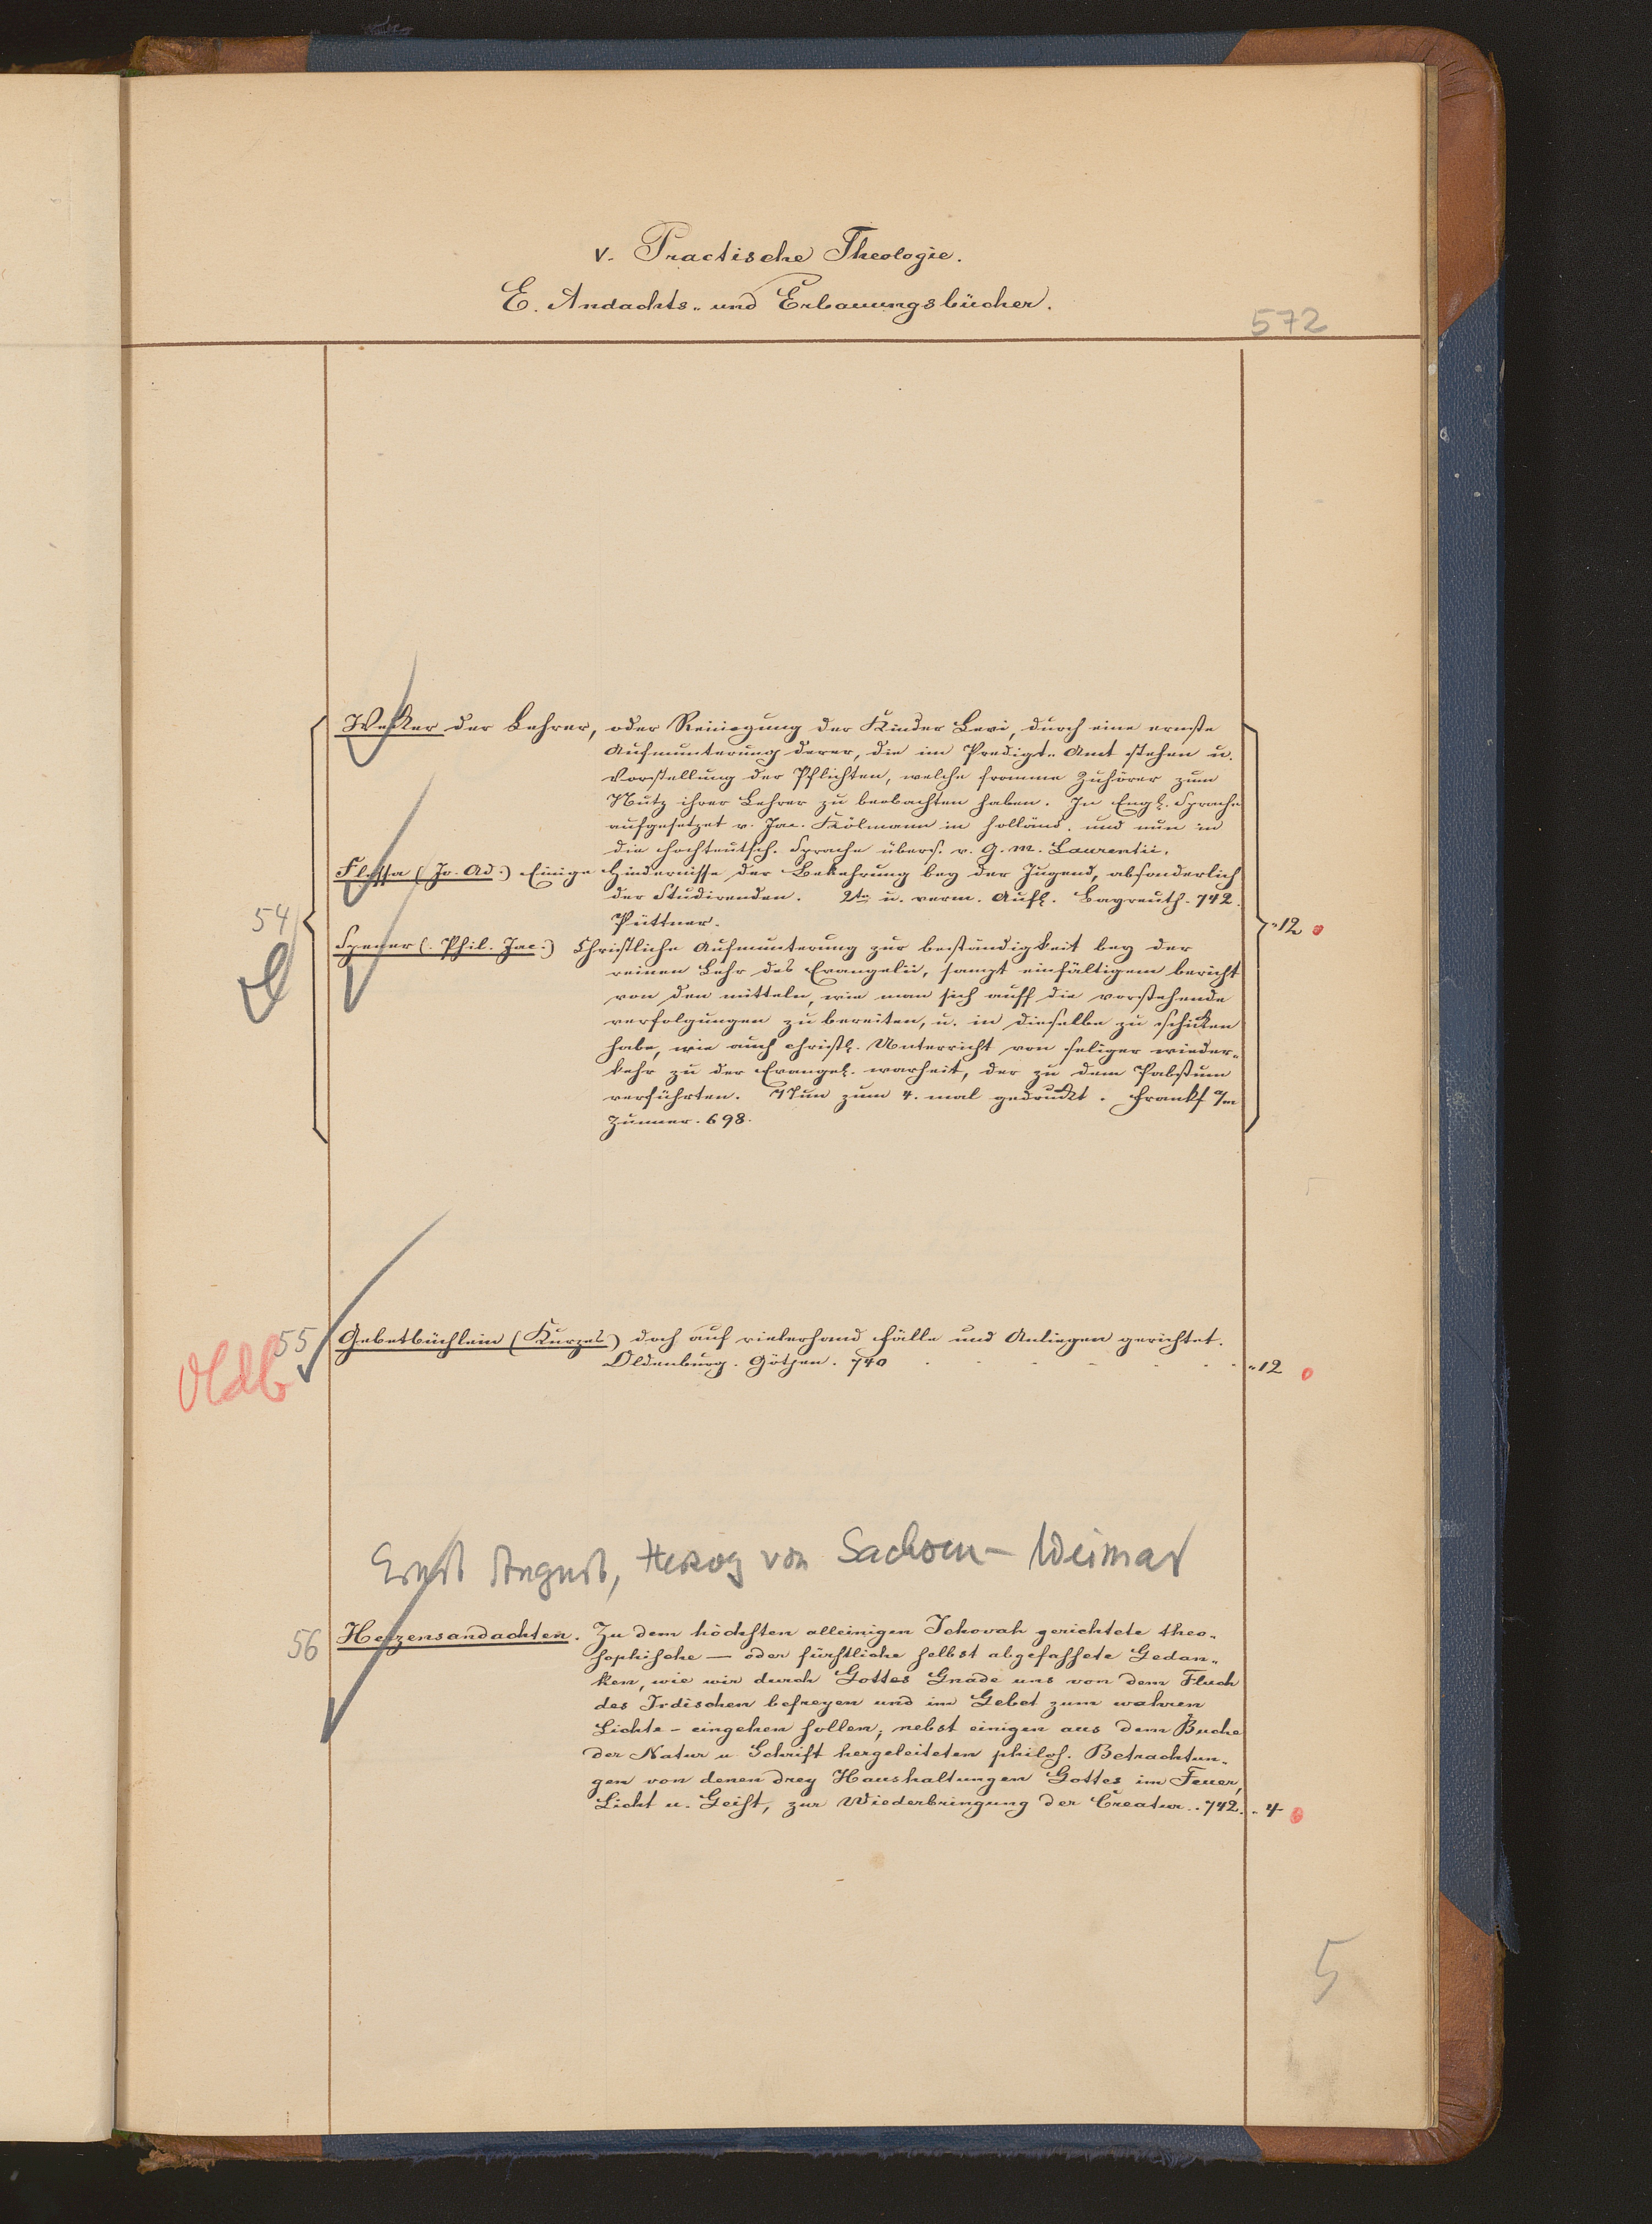 V. Practische Theologie.
E. Andachts- und Erbauungsbücher.
572
Wecker der Lehrer, oder Reinigung der Kinder Levi, durch eine ernste
Aufmunterung derer, die im Predigt-Amt stehen u.
Vorstellung der Pflichten, welche fromme Zuhörer zum
Nutz ihrer Lehrer zu beobachten haben. In Engl. Sprache
aufgesetzet v. Jac. Kölmann in Holländ. und nun in
die hochteutsch. Sprache übers. v. G. M. Laurentii.
Flessa (Jo. Ad.) Einige Hindernisse der Bekehrung bey der Jugend, absonderlich
der Studirenden. 2te u. verm. Aufl. Bayreuth. 742.
54
Püttner.
"12
Spener (. Phil. Jac.) Christliche Aufmunterung zur beständigkeit bey der
reinen Lehr des Evangelii, sampt einfältigem bericht
von den mitteln, wie man sich auff die vorstehende
verfolgungen zu bereiten, u. in dieselbe zu schicken
habe, wie auch christl. Unterricht von seliger wieder-
kehr zu der Evangel. warheit, der zu dem Pabstum
verführten. Nun zum 4. mal gedruckt. Frankf a/m
Zunner. 698.
55 Gebetbüchlein (Kurzes) doch auf vielerhand Fälle und Anliegen gerichtet.
Oldb
Oldenburg. Göthen. 740 . . . . . . "12
Ernst August, Herzog von Sachsen-Weimar
56 Herzensandachten. Zu dem höchsten alleinigen Jehovah gerichtete theo-
sophische — oder fürstliche selbst abgefassete Gedan-
ken, wie wir durch Gottes Gnade uns von dem Fluch
des Irdischen befreyen und im Gebet zum wahren
Lichte - eingehen sollen; nebst einigen aus dem Buche
der Natur u. Schrift hergeleiteten philos. Betrachtun-
gen von denen drey Haushaltungen Gottes im Feuer,
Licht u. Geist, zur Wiederbringung der Creatur. . 742. "4
5